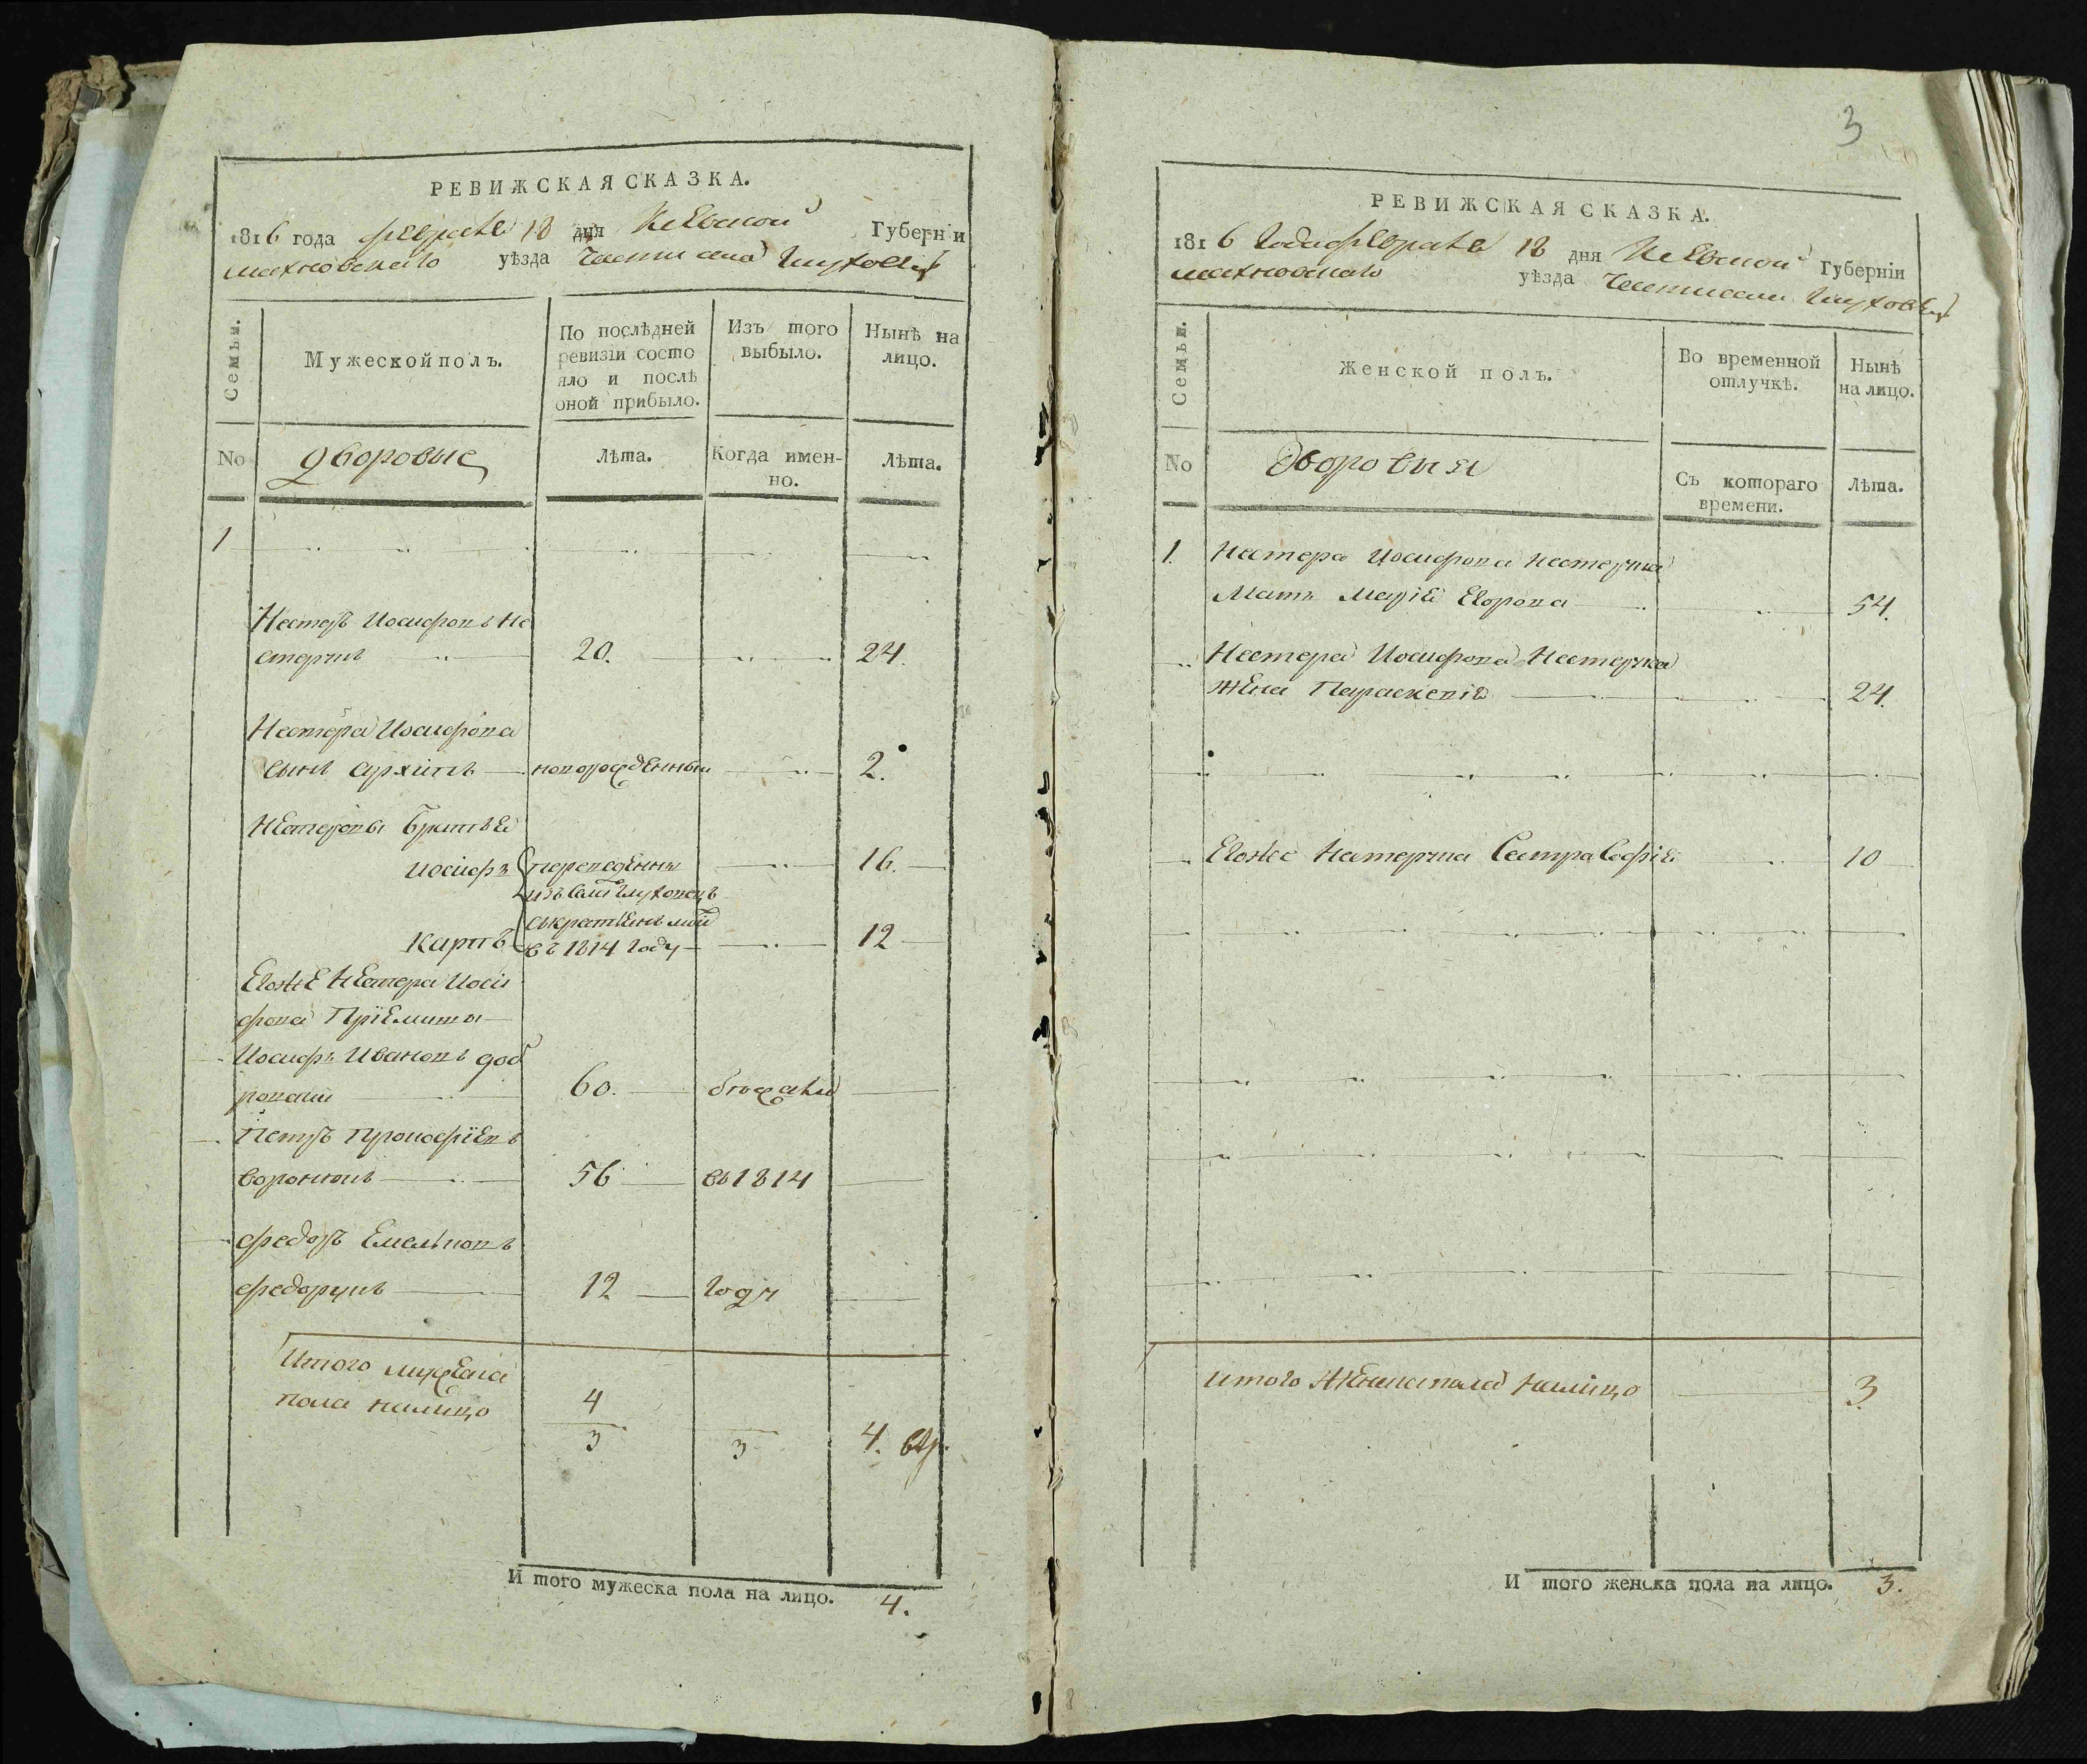 РЕВИЖСКАЯ СКАЗКА.
1816 года февраля 18 дня Киевской Губерніи
махновскаго уѣзда Части села Глуховецъ
Семьи.
Мужеской полъ.
По послѣдней
ревизіи состо
яло и послѣ
оной прибыло.
Изъ того
выбыло.
Нынѣ на
лицо.
No
дворовые
лѣта.
Когда имен-
но.
лѣта.
1
Нестеръ Иосифовъ Не
стерчукъ 20. 24.
Нестера Иосифова
сынъ архипъ новорожденный 2.
Нестеровы братья
иосифъ переведенны 16.
изъ села глуховецъ
карпъ въ 1814 году 12
Егоже Нестера Иоси
фова Пріемыши
Иосифъ Ивановъ
60. бежали
Петръ Прокофіевъ
56 въ 1814
федоръ Емельновъ
федорчукъ 12 году
Итого мужеска
пола налицо
4
3
3
4. ср.
И того мужеска пола на лицо. 4.
3
РЕВИЖСКАЯ СКАЗКА.
1816 Года февраля 18 дня Киевской Губерніи
махновскаго уѣзда Части села Глуховецъ
Семьи.
Женской полъ.
Во временной
отлучкѣ.
Нынѣ
на лицо.
No
Дворовыя
Съ котораго
времени.
лѣта.
1. Нестера Иосифова Нестерчука
Мать Марія Егорова 54.
Нестера Иосифова Нестерчука
жена Параскевія 24.
Егоже Нестерчука Сестра Софія 10
итого женска пола налицо 3
И того женска пола на лицо. 3.